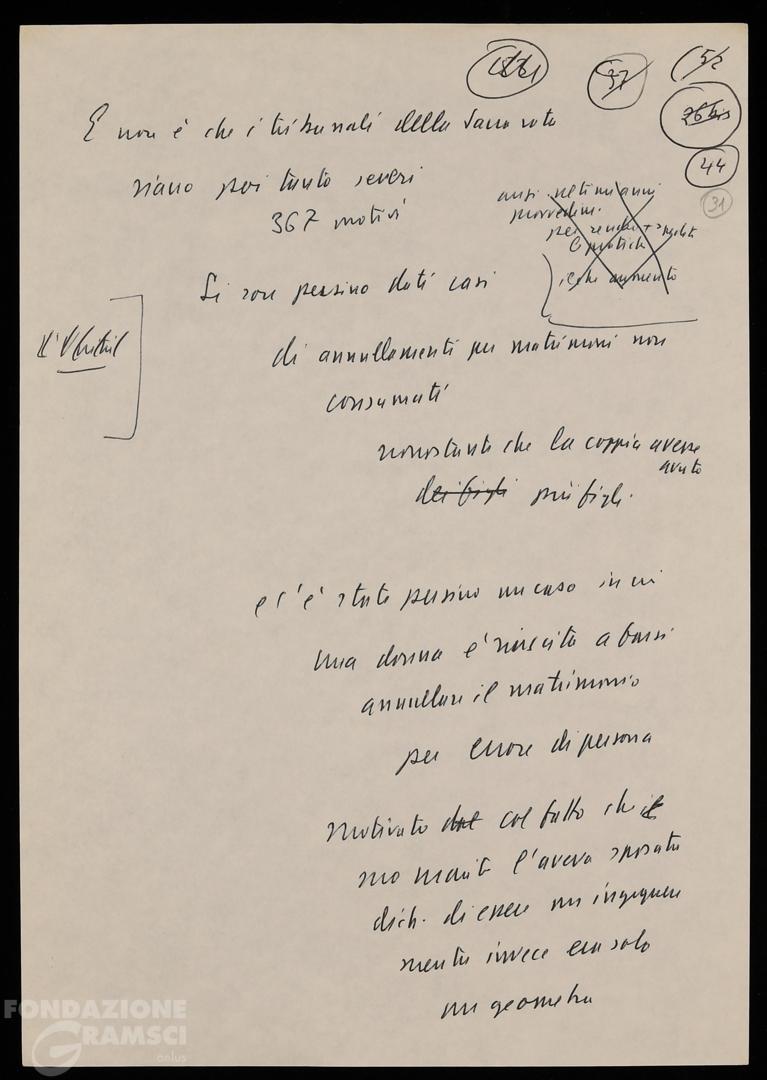 37
52
26 bis
44
31
E non è che i tribunali della Sacra rota
siano poi tanto severi
367 motivi
anzi ultimi anni
provvedim.
per rendere + spedite
le pratiche
aumento
Si son persino dati casi
di annullamenti per matrimoni non
consumati
nonostante che la coppia avesse
avuto
dei figli più figli.
e c'è stato persino un caso in cui
una donna è riuscita a farsi
annullare il matrimonio
per errore di persona
motivato dal col fatto che il
suo marito l'aveva sposata
dich. di essere un ingegnere
mentre invece era solo
un geometra
FONDAZIONE
GRAMSCI
onlus